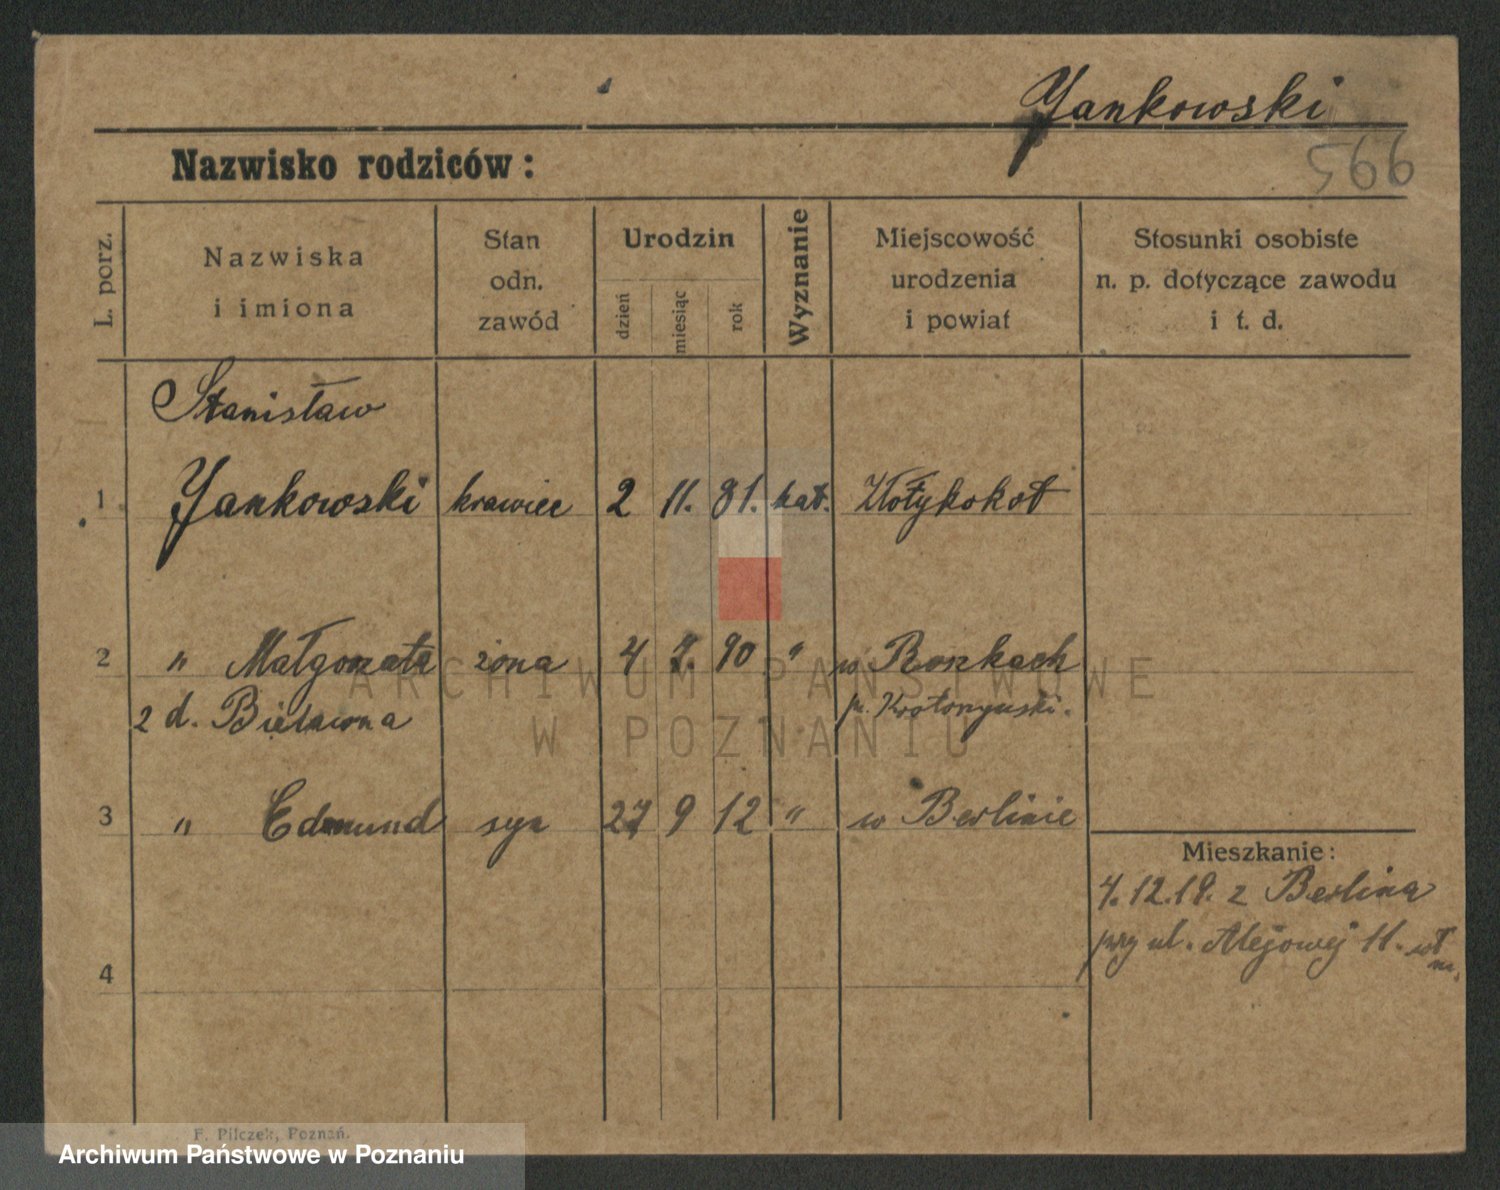 Jankowski
566
Nazwisko rodziców:
L. porz.
Nazwiska
i imiona
Stan
odn.
zawód
Urodzin
dzień
miesiąc
rok
Wyznanie
Miejscowość
urodzenia
i powiat
Stosunki osobiste
n. p. dotyczące zawodu
i t. d.
Stanisław
1 Jankowski krawiec 2 11. 81. kat.
2 " Małgorzata żona 4 90 " w
2 d. p.
3 " Edmund syn 27 9 12 " w Berlinie
Mieszkanie:
4.12.19. z Berlina
przy ul. Alejowej 11.
4
ARCHIWUM PAŃSTWOWE
W POZNANIU
F. Pilczek, Poznań.
Archiwum Państwowe w Poznaniu